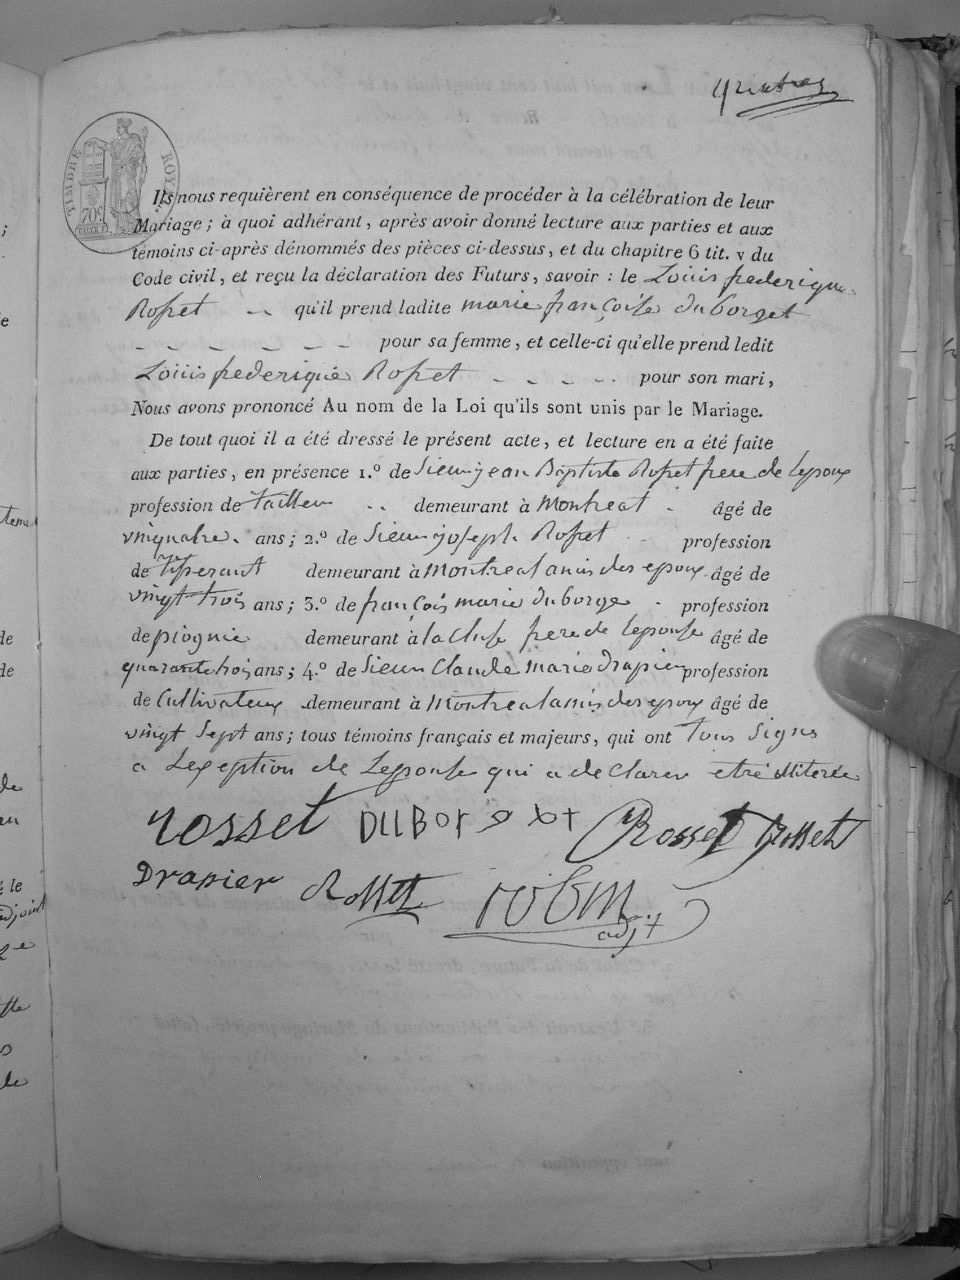 TIMBRE ROYAL
70c
Ils nous requièrent en conséquence de procéder à la célébration de leur
Mariage; à quoi adhérant, après avoir donné lecture aux parties et aux
témoins ci-après dénommés des pièces ci-dessus, et du chapitre 6 tit. v du
Code civil, et reçu la déclaration des Futurs, savoir : le Louis frederique
Rosset qu'il prend ladite marie françoise duborget
pour sa femme, et celle-ci qu'elle prend ledit
Louis frederique Rosset pour son mari,
Nous avons prononcé Au nom de la Loi qu'ils sont unis par le Mariage.
De tout quoi il a été dressé le présent acte, et lecture en a été faite
aux parties, en présence 1.º de Sieur jean Baptiste Rosset frere de lepoux
profession de tailleur demeurant à Montreal âgé de
vinquatre ans; 2.º de Sieur joseph Rosset profession
de Tisserant demeurant à Montreal amis des epoux âgé de
vingt trois ans; 3.º de françois marie duborge profession
de piognie demeurant à la Cluse frere de lepouse âgé de
quarante trois ans; 4.º de Sieur Claude marie drapier profession
de Cultivateur demeurant à Montreal amis des epoux âgé de
vingt Sept ans; tous témoins français et majeurs, qui ont Tous Signs
a Lexeption de Lepouse qui a declarer etre illiterée
rosset DUBorget Rosset Rosset
Drapier Rosset robin
adjt